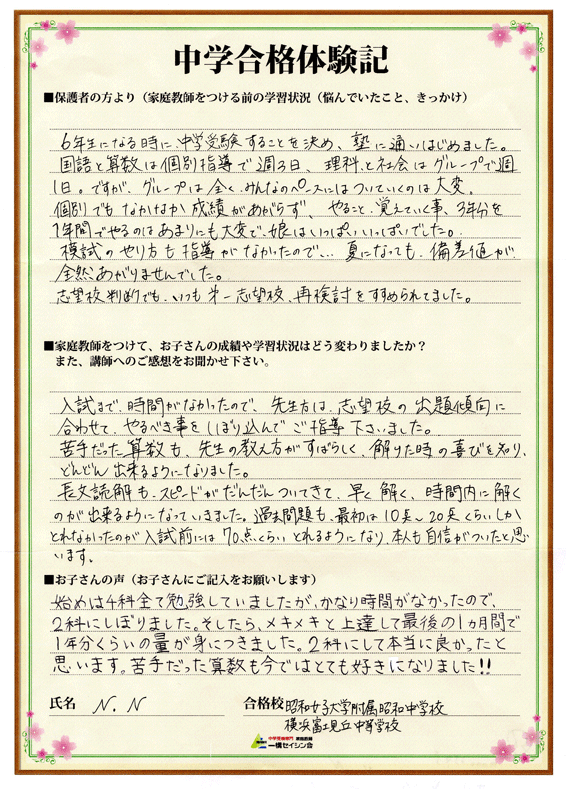 中学合格体験記
■保護者の方より（家庭教師をつける前の学習状況（悩んでいたこと、きっかけ）
6年生になる時に、中学受験することを決め、塾に通いはじめました。
国語と算数は個別指導で週3日、理科と社会はグループで週
1日。ですが、グループは全く、みんなのペースにはついていくのは大変。
個別でもなかなか成績があがらず、やること、覚えていく事、3年分を
1年間でやるのはあまりにも大変で、娘はいっぱいいっぱいでした。
模試のやり方も指導がなかったので…夏になっても、偏差値が
全然あがりませんでした。
志望校判断でも、いつも第一志望校、再検討をすすめられてました。
■家庭教師をつけて、お子さんの成績や学習状況はどう変わりましたか？
また、講師へのご感想をお聞かせ下さい。
入試まで、時間がなかったので、先生方は、志望校の出題傾向に
合わせて、やるべき事をしぼり込んでご指導下さいました。
苦手だった算数も、先生の教え方がすばらしく、解けた時の喜びを知り、
どんどん出来るようになりました。
長文読解も、スピードがだんだんついてきて、早く解く、時間内に解く
のが出来るようになっていきました。過去問題も、最初は10点～20点くらいしか
とれなかったのが入試前には70点くらいとれるようになり、本人も自信がついたと思
います。
■お子さんの声（お子さんにご記入をお願いします）
始めは4科全て勉強していましたが、かなり時間がなかったので、
2科にしぼりました。そしたら、メキメキと上達して最後の1ヵ月間で
1年分くらいの量が身につきました。2科にして本当に良かったと
思います。苦手だった算数も今ではとても好きになりました!!
氏名 N.N 合格校 昭和女子大学附属昭和中学校
横浜富士見丘中等学校
中学受験専門 家庭教師
一橋セイシン会